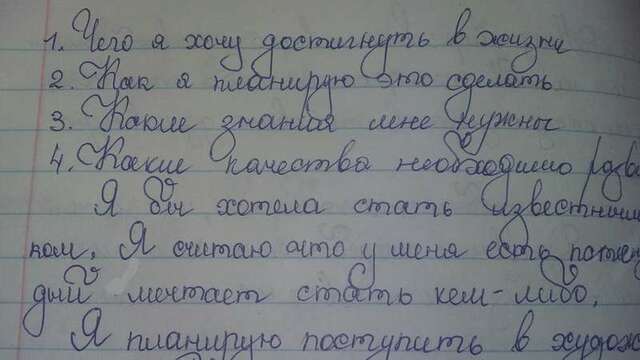 1. Чего я хочу достигнуть в жизни
2. Как я планирую это сделать
3. Какие знания мне нужны
4. Какие качества необходимо разв
Я бы хотела стать известным
ком. Я считаю что у меня есть потен
дый мечтает стать кем-либо.
Я планирую поступить в худож